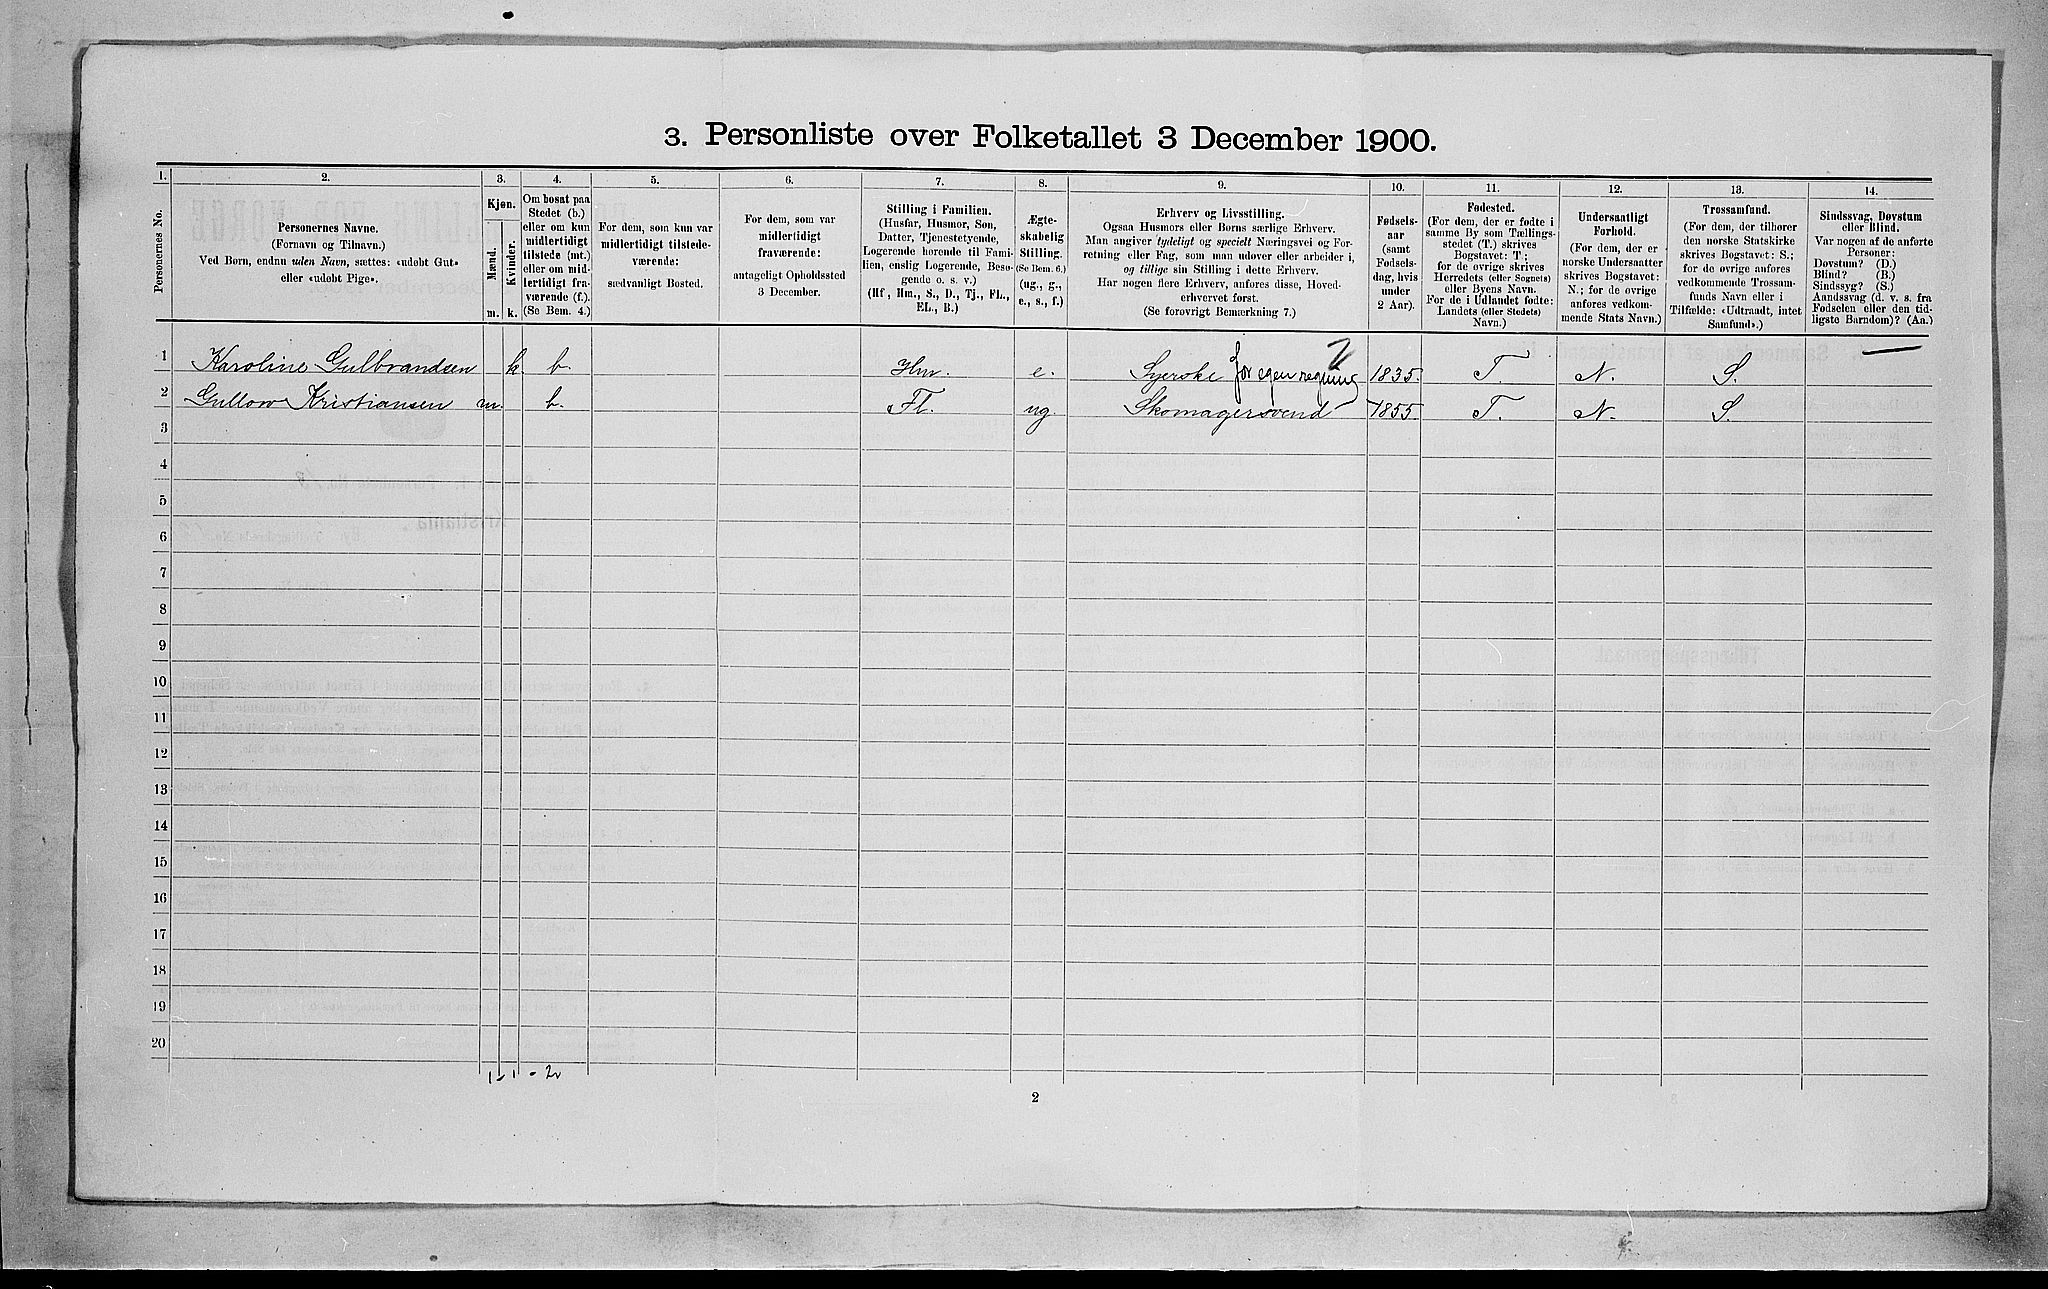 3. Personliste over Folketallet 3 December 1900.
1. 2. 3. 4. 5. 6. 7. 8. 9. 10. 11. 12. 13. 14.
Personernes No.
Personernes Navne.
(Fornavn og Tilnavn.)
Ved Børn, endnu uden Navn, sættes: «udøbt Gut»
eller «udøbt Pige».
Kjøn.
Mænd.
Kvinder.
m. k.
Om bosat paa
Stedet (b.)
eller om kun
midlertidigt
tilstede (mt.)
eller om mid-
lertidigt fra-
værende (f.).
(Se Bem. 4.)
For dem, som kun var
midlertidigt tilstede-
værende:
sædvanligt Bosted.
For dem, som var
midlertidigt
fraværende:
antageligt Opholdssted
3 December.
Stilling i Familien.
(Husfar, Husmor, Søn,
Datter, Tjenestetyende,
Logerende hørende til Fami-
lien, enslig Logerende, Besø-
gende o. s. v.)
(Hf, Hm., S., D., Tj., FL.,
EL., B.)
Ægte-
skabelig
Stilling.
(Se Bem. 6.)
(ug., g.,
e., s., f.)
Erhverv og Livsstilling.
Ogsaa Husmors eller Børns særlige Erhverv.
Man angiver tydeligt og specielt Næringsvei og For-
retning eller Fag, som man udøver eller arbeider i,
og tillige sin Stilling i dette Erhverv.
Har nogen flere Erhverv, anføres disse, Hoved-
erhvervet først.
(Se forøvrigt Bemærkning 7.)
Fødsels-
aar
(samt
Fødsels-
dag, hvis
under
2 Aar).
Fødested.
(For dem, der er fødte i
samme By som Tællings-
stedet (T.) skrives
Bogstavet: T;
for de øvrige skrives
Herredets (eller Sognets)
eller Byens Navn.
For de i Udlandet fødte:
Landets (eller Stedets)
Navn.)
Undersaatligt
Forhold.
(For dem, der er
norske Undersaatter
skrives Bogstavet:
N.; for de øvrige
anføres vedkom-
mende Stats Navn.)
Trossamfund.
(For dem, der tilhører
den norske Statskirke
skrives Bogstavet: S.;
for de øvrige anføres
vedkommende Trossam-
funds Navn eller i
Tilfælde: «Udtraadt, intet
Samfund».)
Sindssvag, Døvstum
eller Blind.
Var nogen af de anførte
Personer:
Døvstum? (D.)
Blind? (B.)
Sindssyg? (S.)
Aandssvag (d. v. s. fra
Fødselen eller den tid-
ligste Barndom)? (Aa.)
1 Karoline Gulbrandsen k. b. Hm. e. Syerske for egen regning 1835. T. N. S.
2 Gullow Kristiansen m. b. Fl. ug. Skomagersvend 1855. T. N. S.
3
4
5
6
7
8
9
10
11
12
13
14
15
16
17
18
19
20
1 - 1 - 2
2